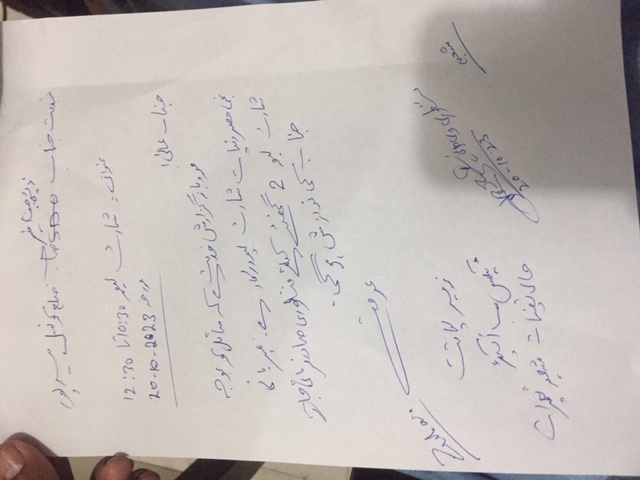 بخدمت جناب صاحب ضلع کونسل میرپور
عنوان: شارٹ لیو 10:30 تا 12:30
مورخہ 20-10-2023
جناب عالی!
مودبانہ گزارش خدمت ہے کہ سائل کو بوجہ
نجی مصروفیات شارٹ لیو درکار ہے۔ مہربانی
شارٹ لیو 2 گھنٹے کیلئے منظوری صادر فرمائی جائے
جناب کی نوازش ہو گی۔
عرضے
زبیر
ٹیکس سب انسپکٹر
حال تعینات شعبہ تعمیرات
منظوری دی جاتی ہے
20-10-23
شعبہ